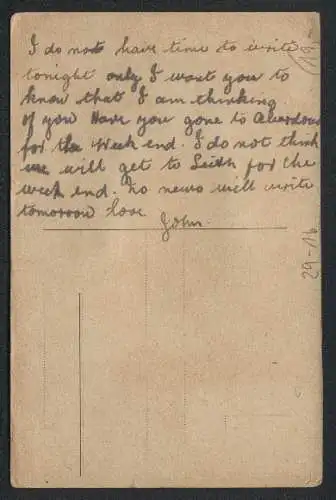 I do not have time to write
tonight only I want you to
know that I am thinking
of you Have you gone to Aberdour
for the Week end. I do not think
we will get to Leith for the
week end. no news will write
tomorrow love
John.
29-16